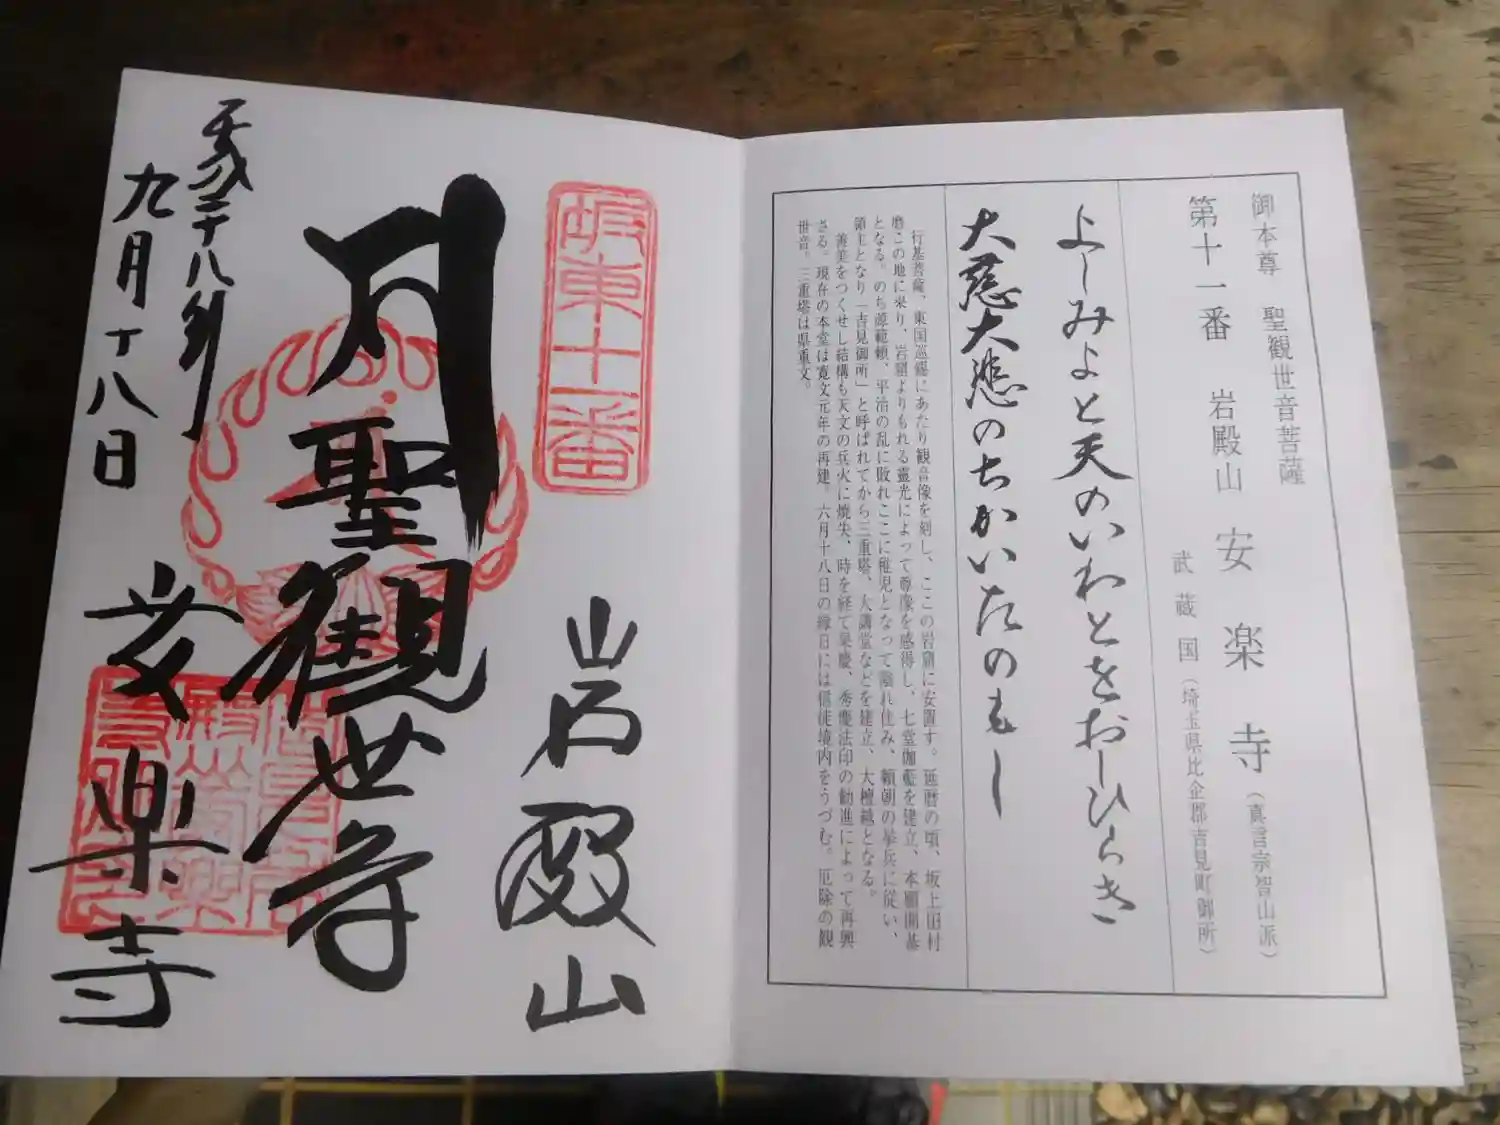 御本尊 聖観世音菩薩
第十一番 岩殿山 安楽寺(真言宗智山派)
武蔵国(埼玉県比企郡吉見町御所)
よしみよと天のいわとをおしひらき
大慈大悲のちかいたのもし
行基菩薩、東国巡錫にあたり観音像を刻し、ここの岩窟に安置す。延暦の頃、坂上田村
磨この地に来り、岩窟よりもれる霊光によって尊像を感得し、七堂伽藍を建立、本願開基
となる。のち源範頼、平治の乱に敗れここに稚児となって隠れ住み、頼朝の挙兵に従い、
領主となり「吉見御所」と呼ばれてから三重塔、大講堂などを建立、大檀越となる。
善美をつくせし結構も天文の兵火に焼失、時を経て杲慶、秀慶法印の勧進によって再興
さる。現在の本堂は寛文元年の再建。六月十八日の縁日には信徒境内をうづむ。厄除の観
世音。三重塔は県重文。
坂東十一番
岩殿山
聖観世音
安楽寺
平成二十八年
九月十八日